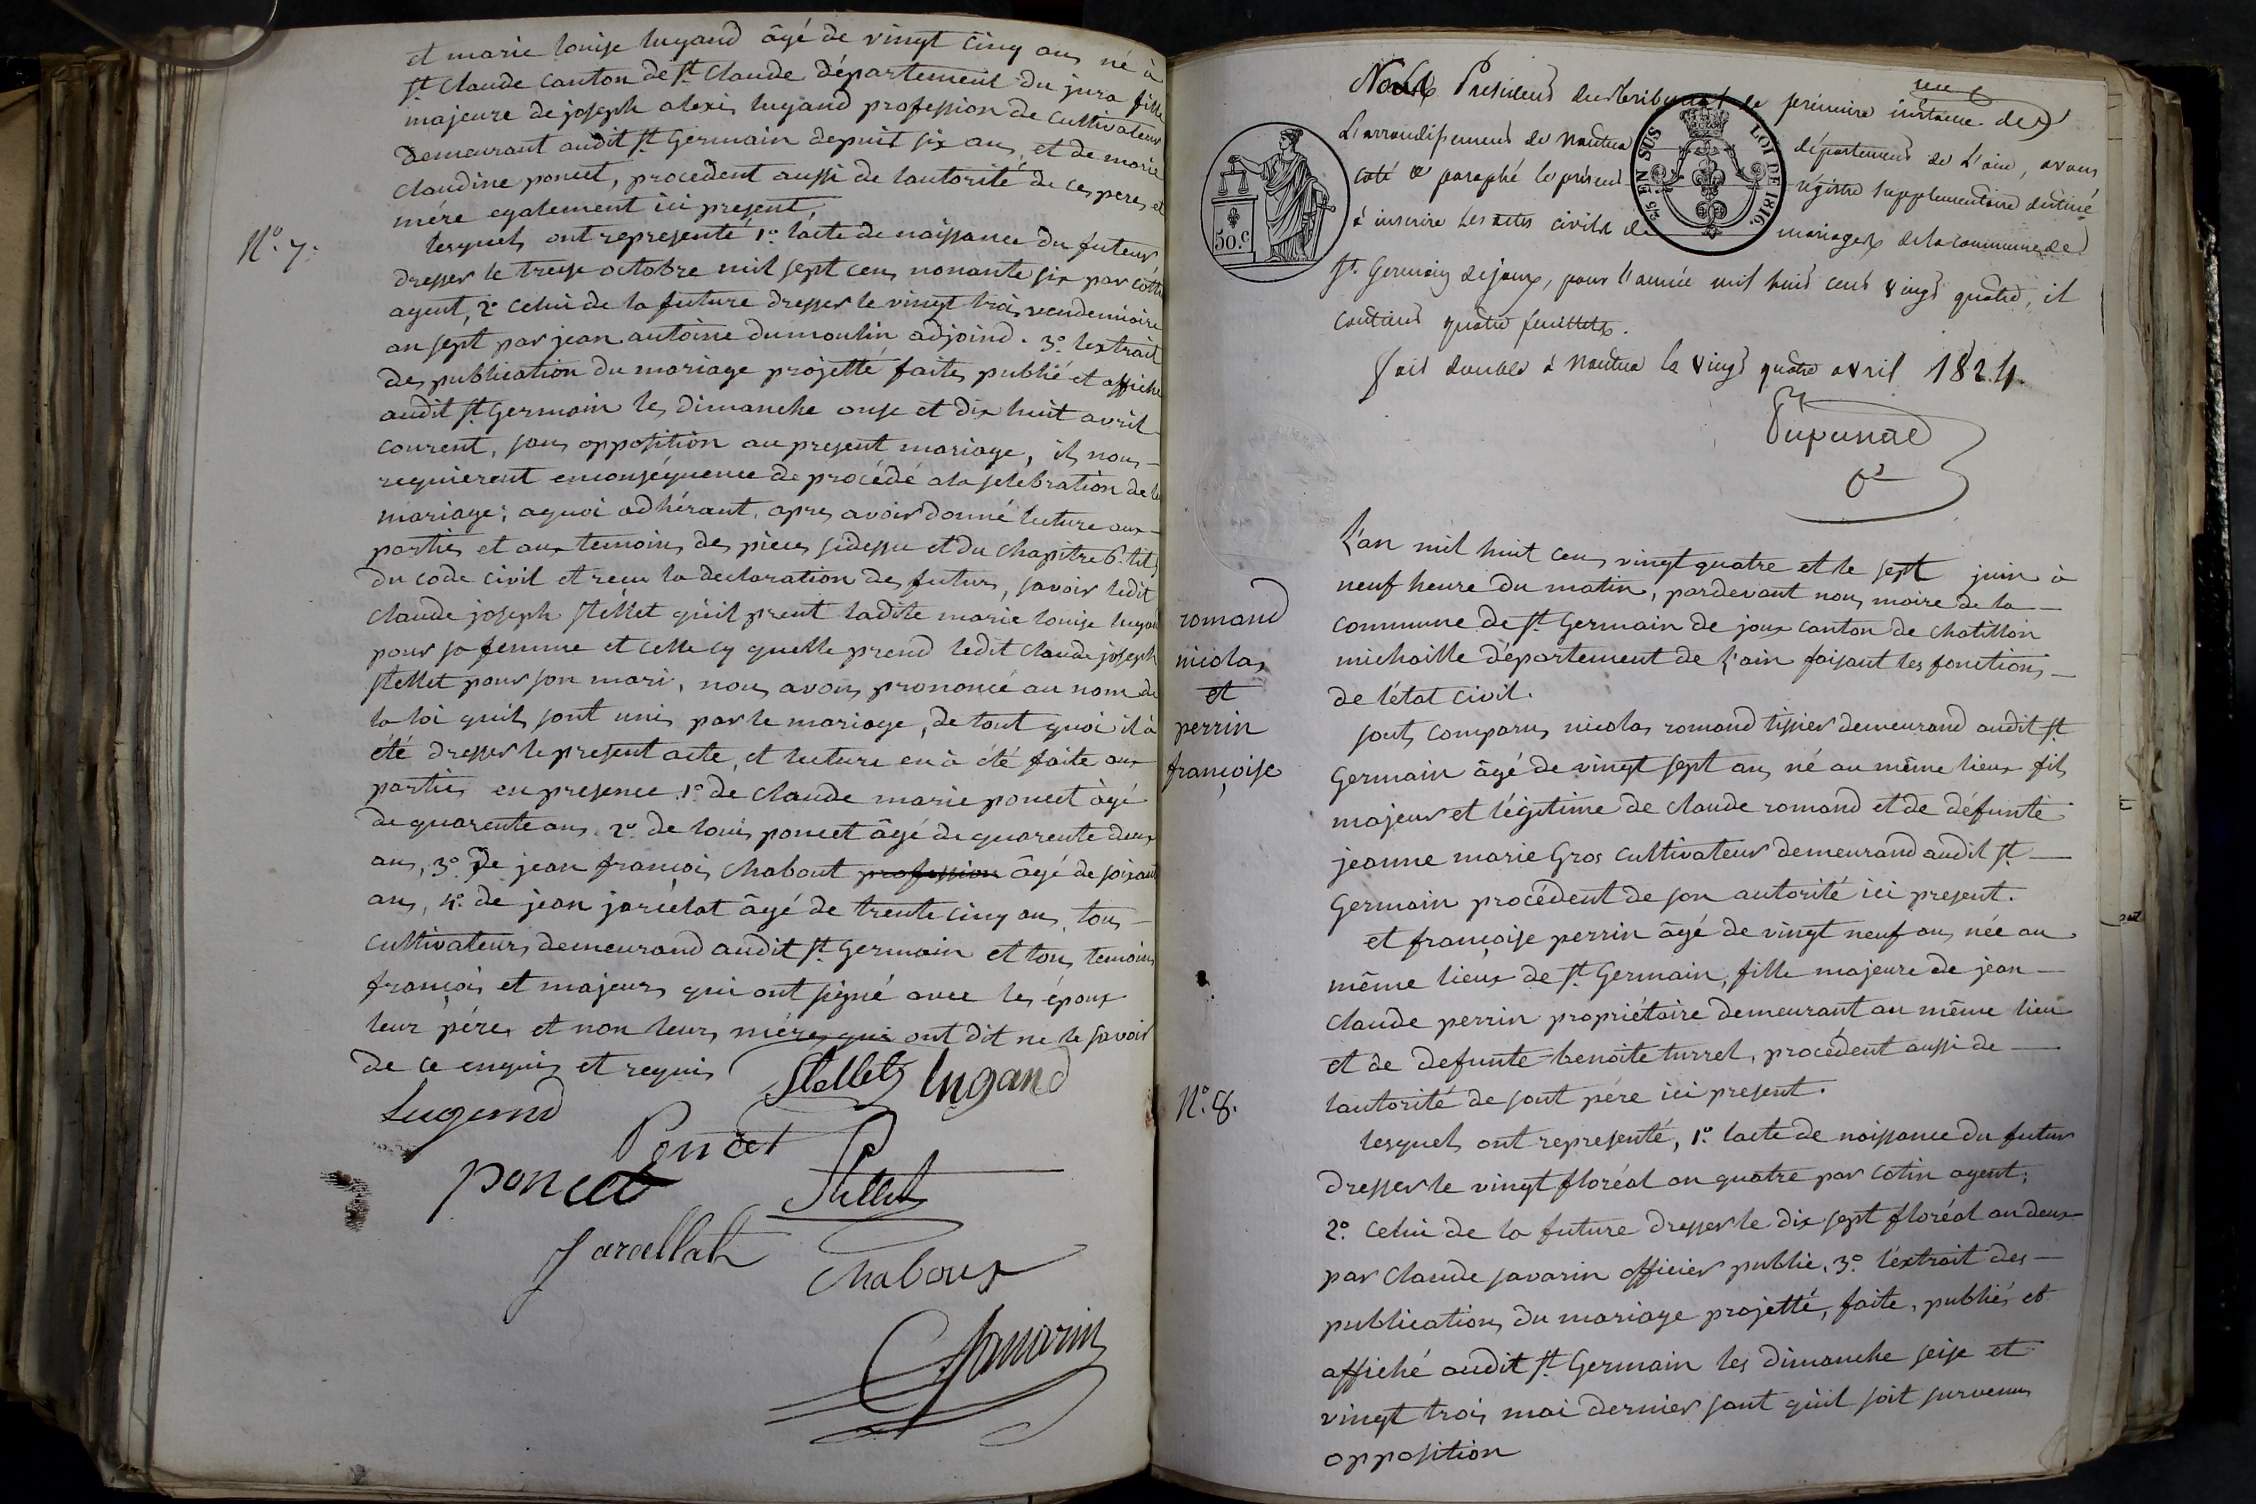 et marie louise lugand âgé de vingt cinq ans né à
St. Claude canton de St. Claude département du jura fille
majeure de joseph alexis lugand profession de cultivateur
demeurant audit St. Germain depuis six ans, et de marie
claudine poncet, procedent aussi de lautorité de ces pere et
mére egalement ici present.
N.o 7.
lesquels ont representé 1.o lacte de naissance du futeur
dresser le treise octobre mil sept cens nonante six par cottin
agent, 2.o celui de la future dresser le vingt trois vendemiaire
an sept par jean antoine dumoulin adjoind. 3.o lextrait
des publication du mariage projetté faites publié et affiché
audit St. Germain les dimanche onse et dix huit avril
courent, sans opposition au present mariage, ils nous
requierent en conséquence de procédé a la selebration de leur
mariage; aquoi adhérant, apres avoir donné lecture aux
parties et aux temoins des pieces sidessu et du chapitre 6. tit
du code civil et recu la declaration des futurs, savoir ledit
claude joseph stéllet quil prent ladite marie louise lugand
pour sa femme et celle cy quelle prend ledit claude joseph
stellet pour son mari, nous avons prononcé au nom de
la loi quils sont unis par le mariage, de tout quoi il à
été dresser le present acte, et lecture en à été faite aux
parties en presence 1.o de claude marie poncet âgé
de quarente ans 2.o de louis poncet âgé de quarente deux
ans, 3.o de jean françois chabout profession âgé de soixante
ans, 4.o de jean jarcelat âgé de trente cinq ans tous
cultivateurs demeurand audit St. Germain et tous temoins
françois et majeurs qui ont signé avec les époux
leur péres et non leurs méres qui ont dit ne le savoir
de ce enquis et requis
Stellet lugand
Lugand
Poncet
poncet
Stellet
Jarcellat
Chaboux
Savarin
Nous Président du tribunal de prémière instance de
L'arrondissement de Nantua département de L'ain, avons
coté & paraphé le présent régistre supplementaire destiné
à inscrire les actes civils de mariages de la commune de
St. Germain de joux, pour l'année mil huit cent vingt quatre, il
contient quatre feuillets.
fait double à Nantua le vingt quatre avril 1824.
50.C
25. EN SUS
LOI DE 1816.
romand
nicolas
et
perrin
françoise
L'an mil huit cens vingt quatre et le sept juin à
neuf heure du matin, pardevant nous maire de la
commune de St. Germain de joux canton de chatillon
michaille département de l'ain faisant les fonctions
de l'état civil.
sont comparus nicolas romand tissier demeurand audit St.
Germain âgé de vingt sept ans né au même lieux fils
majeur et légitime de claude romand et de défunte
jeanne marie Gros cultivateur demeurand audit St.
Germain procédent de son autorité ici present.
et françoise perrin âgé de vingt neuf ans née au
même lieux de St. Germain, fille majeure de jean
claude perrin propriétaire demeurant au même lieu
et de defunte benoite turrel, procédent aussi de
lautorité de sont pére ici present.
N.o 8.
lesquels ont representé, 1.o lacte de naissance du futur
dresser le vingt floréal an quatre par cotin agent;
2.o celui de la future dresser le dix sept floréal an deux
par claude savarin officier public. 3.o lextrait des
publications du mariage projetté, faite, publiés et
affiché audit St. Germain les dimanche seise et
vingt trois mai dernier sant quil soit survenus
opposition